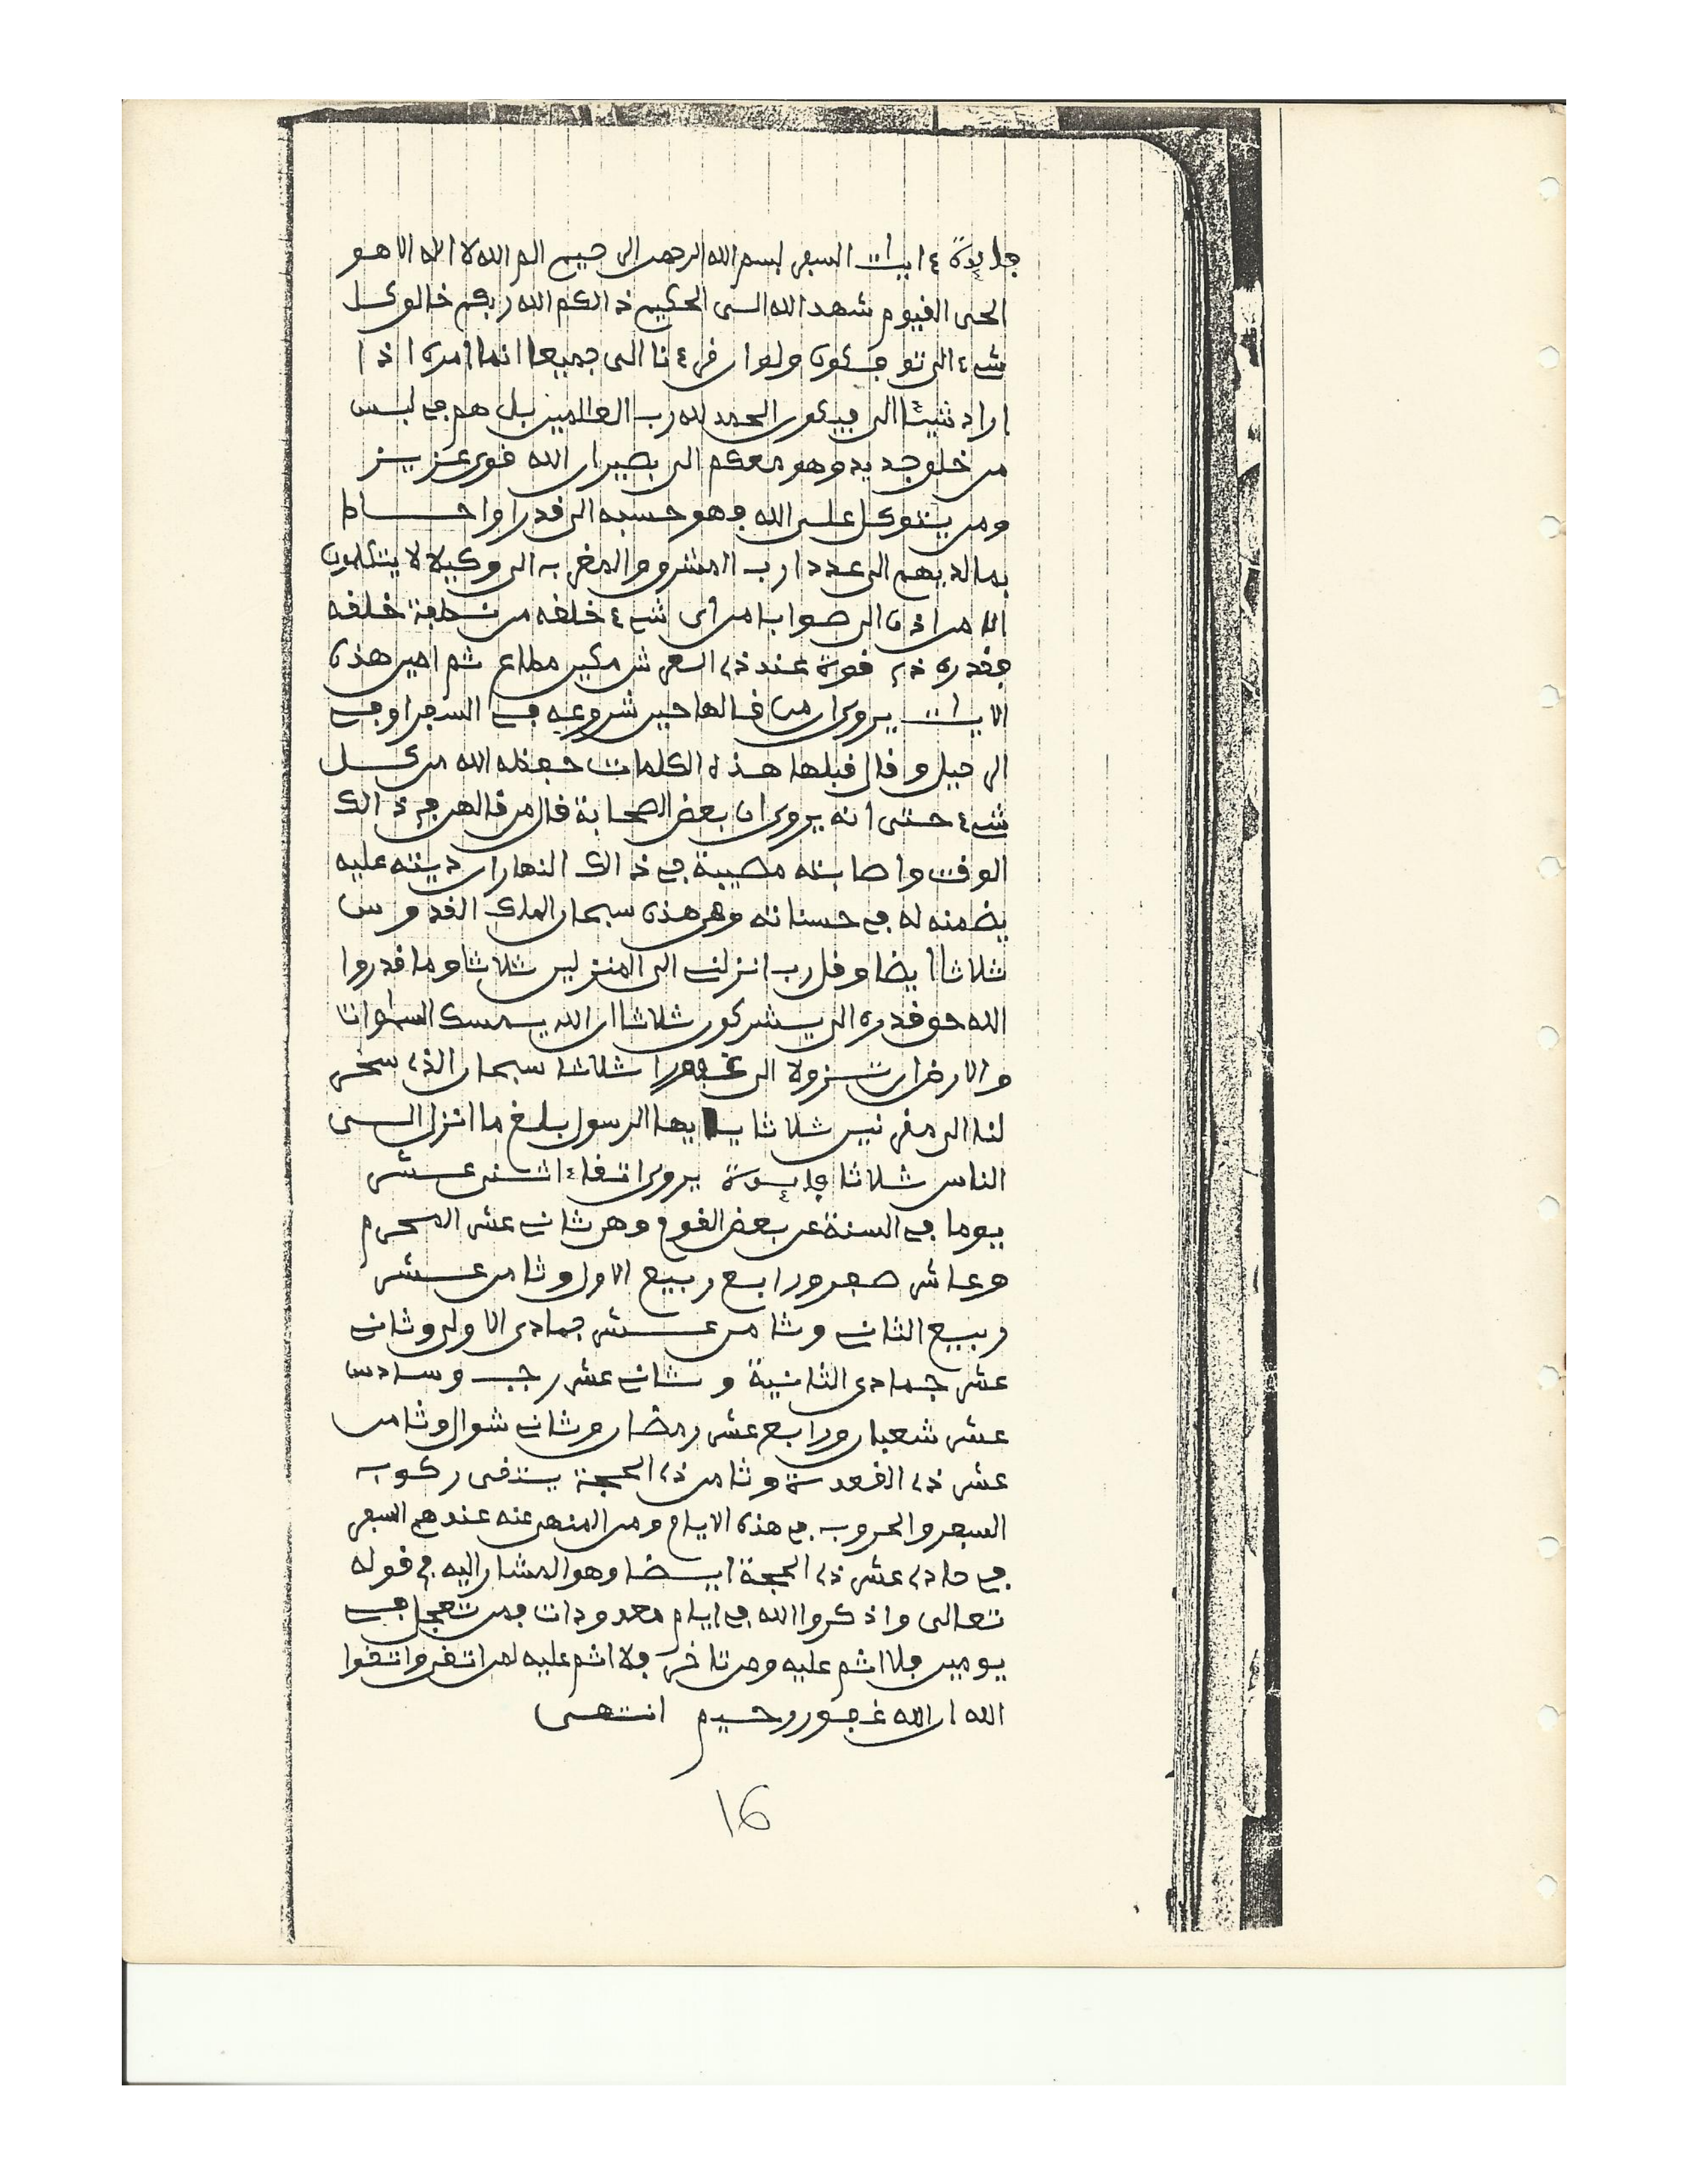 فايدة ءايات السفر بسم الله الرحمن الرحيم الم الله لا اله الا هو
الحي القيوم شهد الله الى الحكيم ذالكم الله ربكم خالق كل
شيء الى توفكون ولو ان قرءانا الى جميعا انما امره اذا
اراد شيئا الى فيكون الحمد لله رب العالمين بل هم في لبس
من خلق جديد وهو معكم الى بصير ان الله قوي عزيز
ومن يتوكل على الله فهو حسبه الى قدرا واحاط
بما لديهم الى عددا رب المشرق والمغرب الى وكيلا لا يتكلمون
الا من اذن الى صوابا من أي شيء خلقه من نطفة خلقه
فقدره ذي قوة عند ذي العرش مكين مطاع ثم امين هذه
الايات يروى ان من قالها حين شروعه في السفر او في
الرحيل وقال قبلها هذه الكلمات حفظه الله من كل
شيء حتى انه يروى ان بعض الصحابة قال من قالهن في ذالك
الوقت واصابته مصيبة في ذالك النهار ان ديته عليه
يضمنه له في حسناته وهي هذه سبحان الملك القدوس
ثلاثا أيضا وقل رب انزلني الى المنزلين ثلاثا وما قدروا
الله حق قدره الى يشركون ثلاثا ان الله يمسك السموات
والارض ان تزولا الى غفورا ثلاثا سبحان الذي سخر
لنا الى مقرنين ثلاثا يا ايها الرسول بلغ ما انزل الى
الناس ثلاثا فايدة يروى اتقاء اثنى عشر
يوما في السنة عن بعض القوم وهي ثاني عشر المحرم
وعاشر صفر ورابع ربيع الاول وثامن عشر
ربيع الثاني وثامن عشر جمادى الاولى وثاني
عشر جمادى الثانية وثاني عشر رجب وسادس
عشر شعبان ورابع عشر رمضان وثاني شوال وثامن
عشر ذي القعدة وثامن ذي الحجة يتقى ركوب
السفر والحروب في هذه الايام ومن المنهى عنه عندهم السفر
في حادي عشر ذي الحجة ايضا وهو المشار اليه في قوله
تعالى واذكروا الله في ايام معدودات فمن تعجل في
يومين فلا اثم عليه ومن تاخر فلا اثم عليه لمن اتقى واتقوا
الله ان الله غفور رحيم انتهى
16